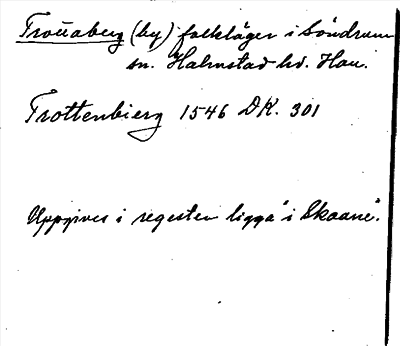 Trottaberg (by) falkläger i Söndrum
sn. Halmstad hd. Hall.
Trottenbierg 1546 DK. 301
Uppgives i regesten ligga "i Skaane".